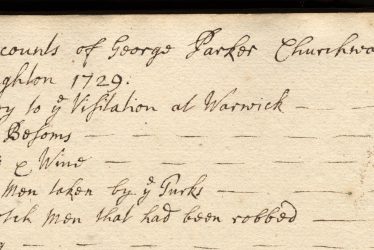 counts of George Parker Churchwa
ghton 1729.
ry to yᵉ Visitation at Warwick
Besoms
& Wine
Men taken by yᵉ Turks
otch Men that had been robbed